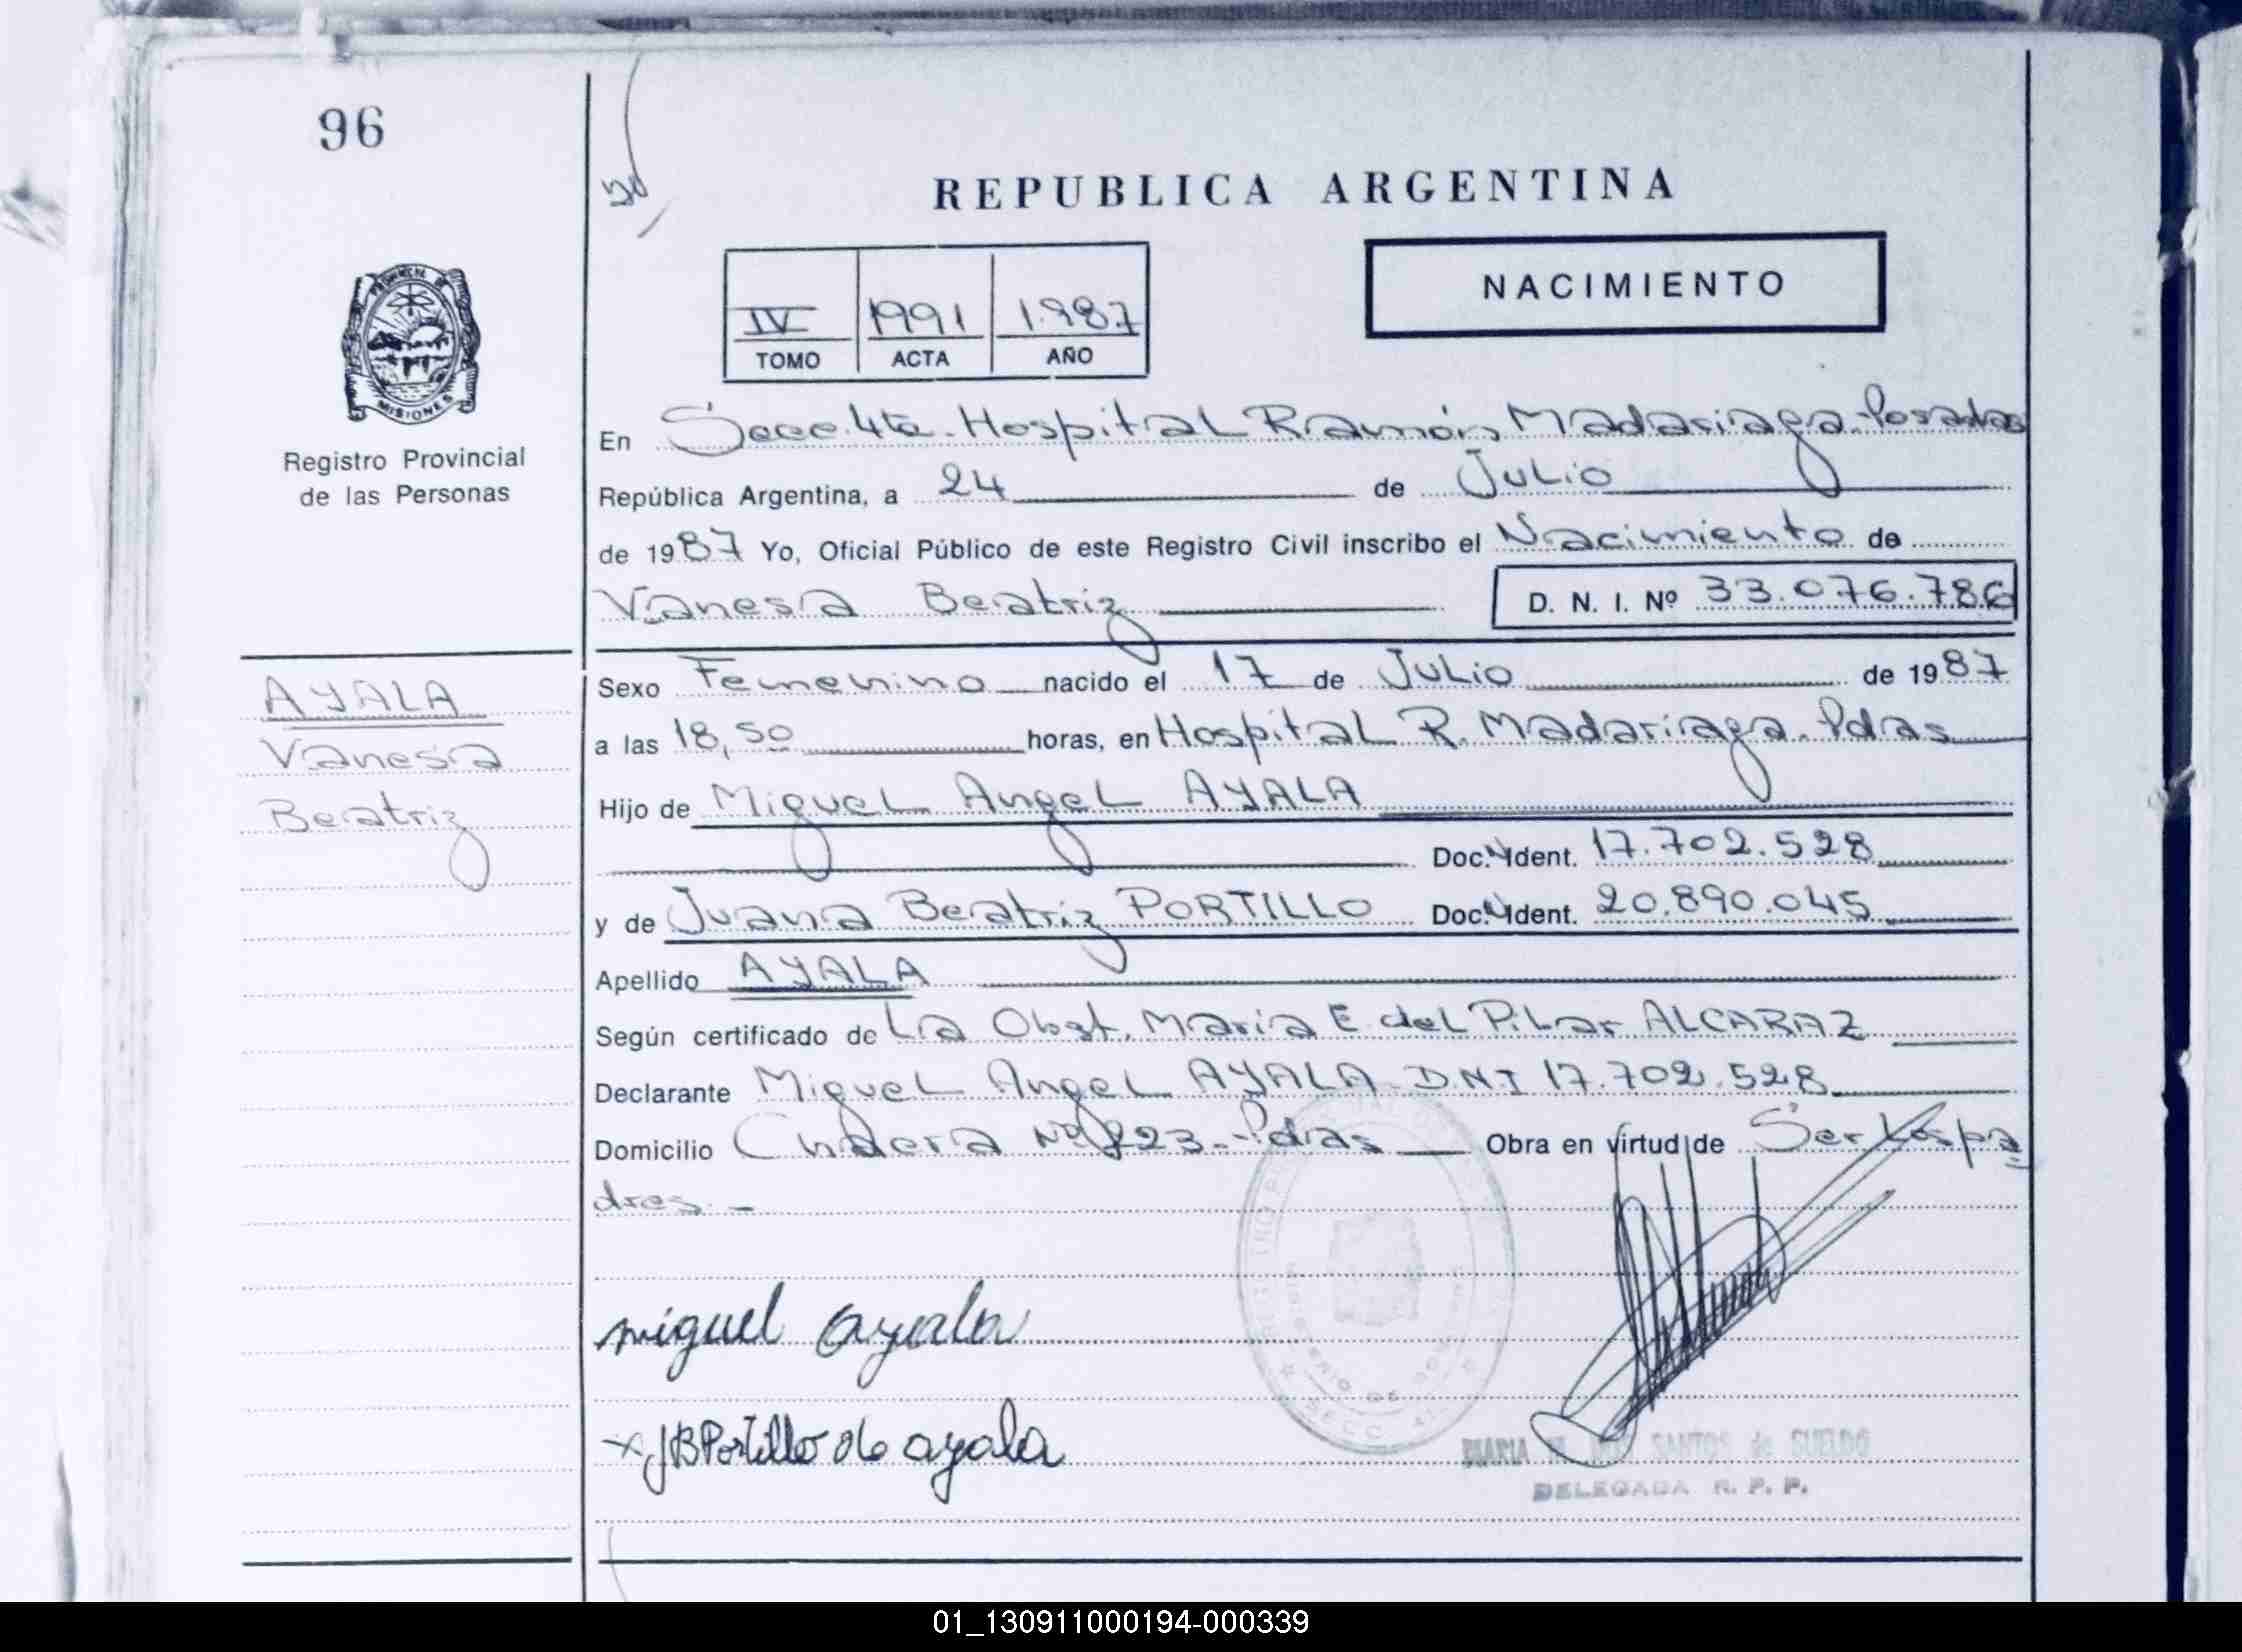 96
REPUBLICA ARGENTINA
NACIMIENTO
IV 1991 1.987
TOMO ACTA AÑO
PROVINCIA DE
MISIONES
Registro Provincial
de las Personas
En Secc. 4ta. Hospital Ramón Madariaga. Posadas
República Argentina, a 24 de Julio
de 1987 Yo, Oficial Público de este Registro Civil inscribo el Nacimiento de
Vanesa Beatriz D. N. I. Nº 33.076.786
AYALA
Vanesa
Beatriz
Sexo Femenino nacido el 17 de Julio de 1987
a las 18,50 horas, en Hospital R. Madariaga. Pdas
Hijo de Miguel Angel AYALA
Doc. N Ident. 17.702.528
y de Juana Beatriz PORTILLO Doc. N Ident. 20.890.045
Apellido AYALA
Según certificado de La Obst. Maria E. del Pilar ALCARAZ
Declarante Miguel Angel AYALA - DNI 17.702.528
Domicilio Nº 223.- Pdas Obra en virtud de Ser los pa
dres.-
miguel ayala
x JB Portillo de ayala
MARIA SANTOS de SUELDO
DELEGADA R. P. P.
01_130911000194-000339